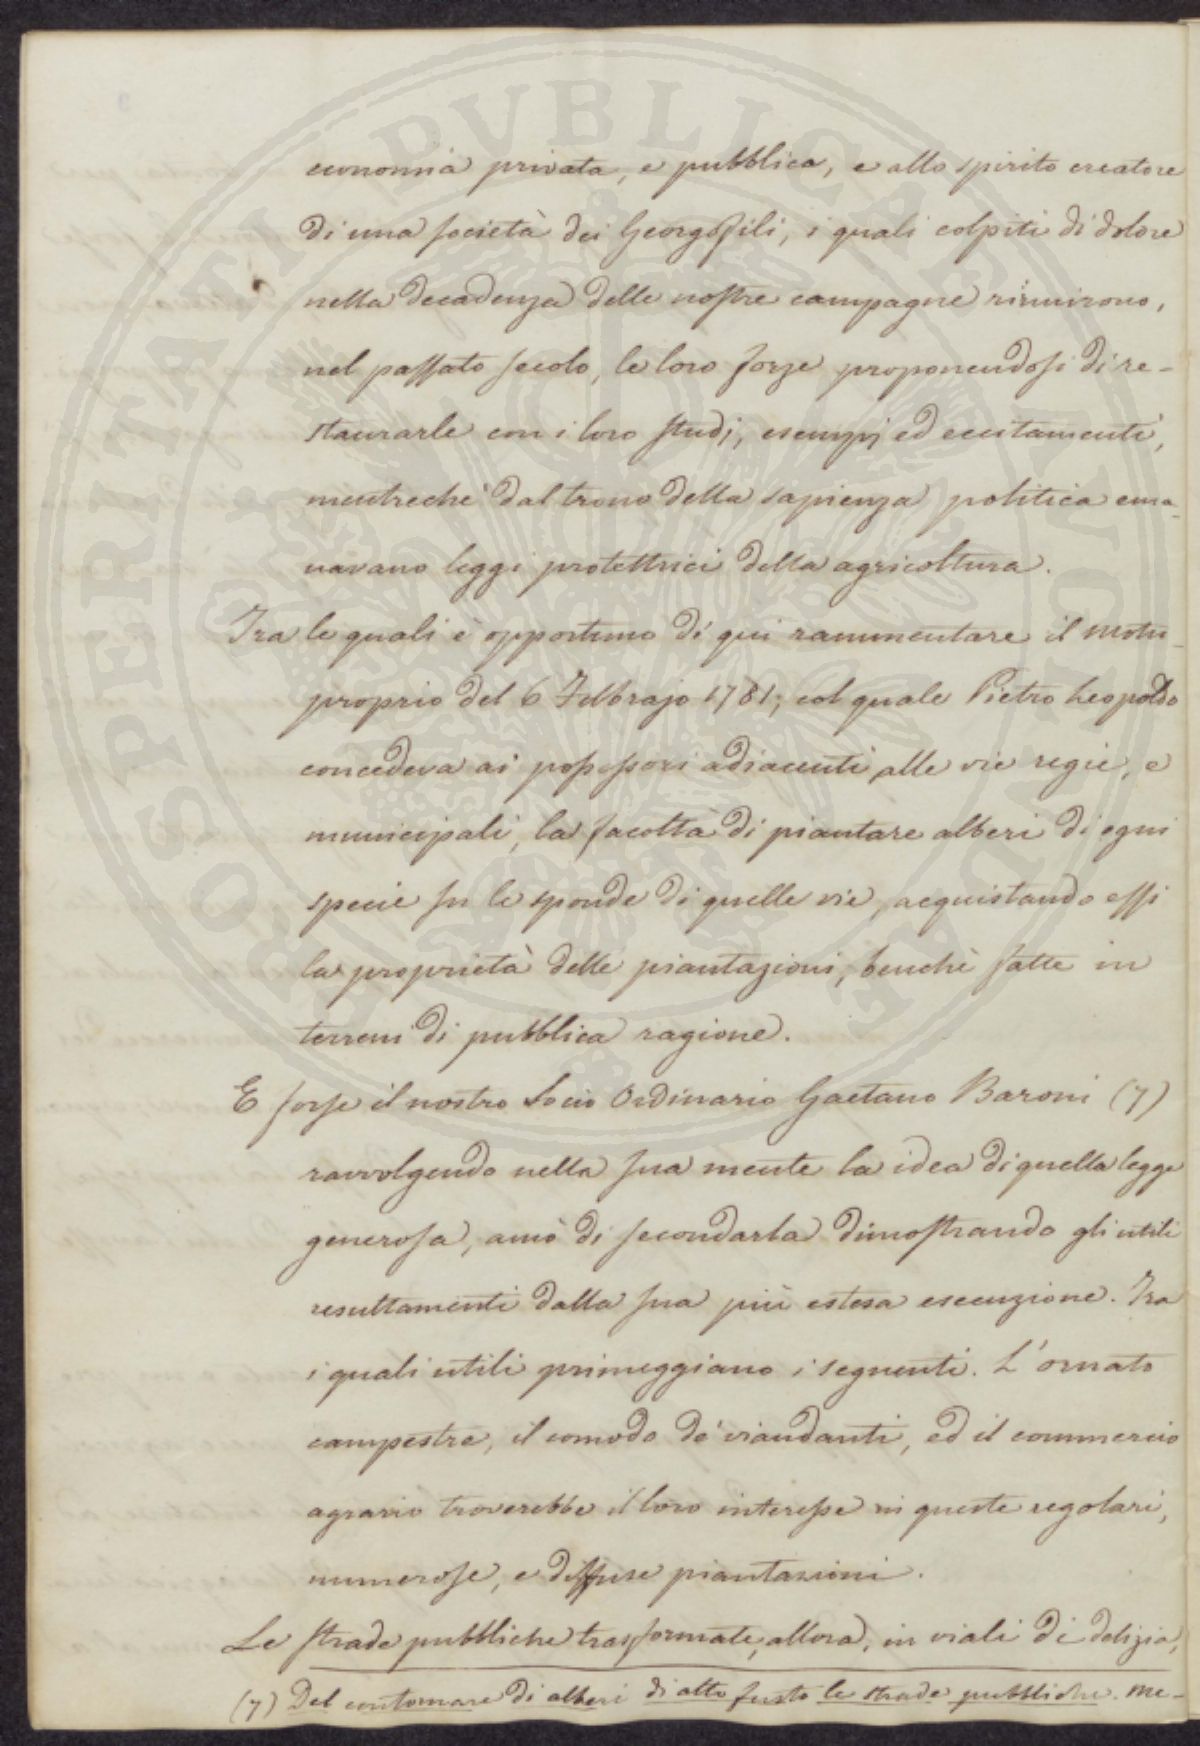 economia privata, e pubblica, e allo spirito creatore
di una società dei Georgofili, i quali colpiti di dolore
nella decadenza delle nostre campagne riunirono,
nel passato secolo, le loro forze proponendosi di re-
staurarle con i loro studj, esempj ed eccitamenti,
mentrechè dal trono della sapienza politica ema-
navano leggi protettrici della agricoltura.
Tra le quali è opportuno di quì rammentare il motu-
proprio del 6 Febbrajo 1781, col quale Pietro Leopoldo
concedeva ai possessori adiacenti alle vie regie, e
municipali, la facoltà di piantare alberi di ogni
specie su le sponde di quelle vie, acquistando essi
la proprietà delle piantazioni, benchè fatte in
terreni di pubblica ragione.
E forse il nostro Socio Ordinario Gaetano Baroni (7)
ravvolgendo nella sua mente la idea di quella legge
generosa, amò di secondarla dimostrando gli utili
resultamenti dalla sua più estesa esecuzione. Tra
i quali utili primeggiano i seguenti. L'ornato
campestre, il comodo de' viandanti, ed il commercio
agrario troverebbe il loro interesse in queste regolari,
numerose, e diffuse piantazioni.
Le strade pubbliche trasformate, allora, in viali di delizia,
(7) Del contornare di alberi di alto fusto le strade pubbliche. Me-
PROSPERITATI PVBLICAE AVGENDAE